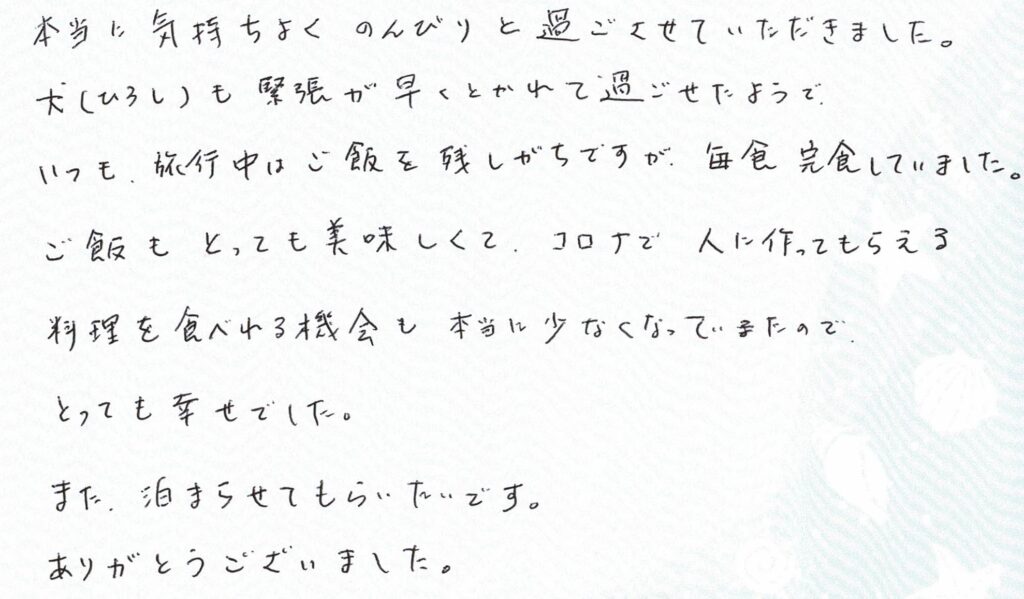 本当に気持ちよくのんびりと過ごさせていただきました。
犬(ひろし)も緊張が早くとかれて過ごせたようで、
いつも、旅行中はご飯を残しがちですが、毎食完食していました。
ご飯もとっても美味しくて、コロナで人に作ってもらえる
料理を食べれる機会も本当に少なくなっていまたので、
とっても幸せでした。
また、泊まらせてもらいたいです。
ありがとうございました。